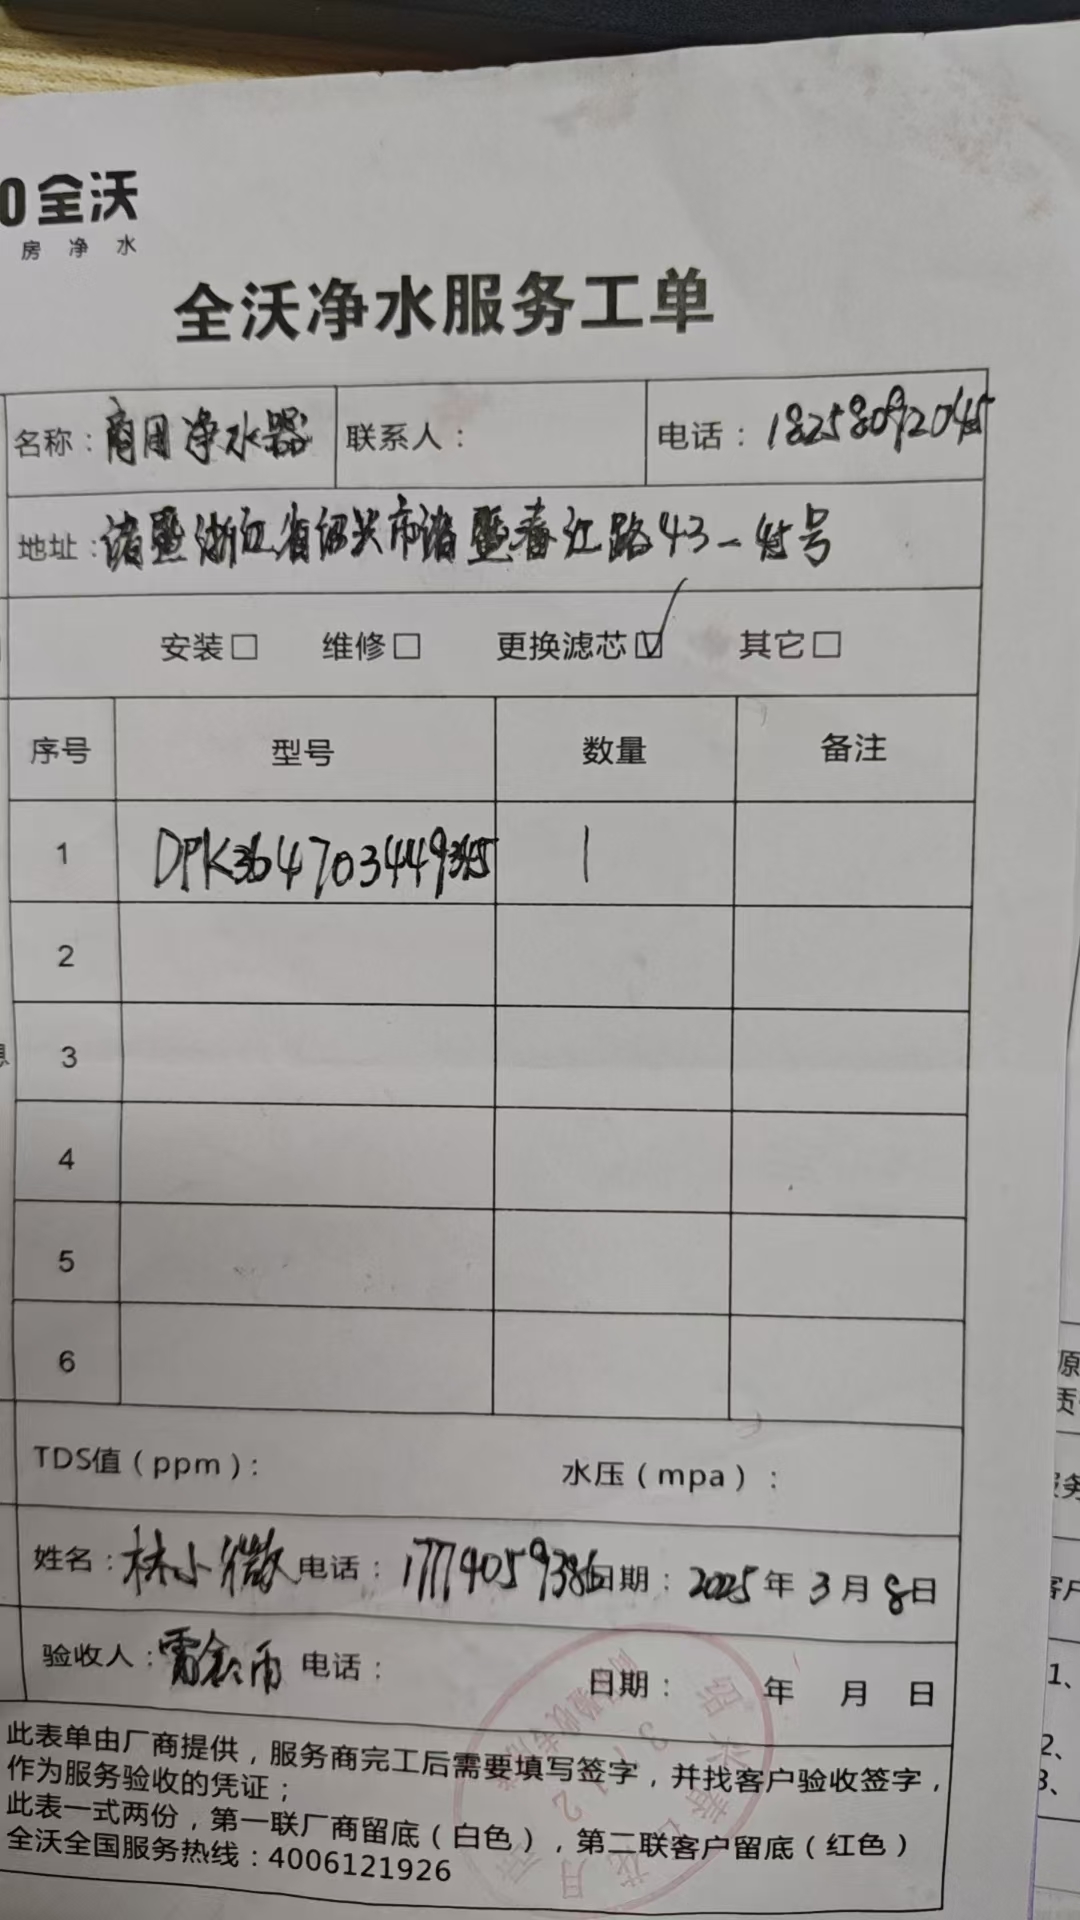 0全沃
房净水
全沃净水服务工单
名称：商用净水器 联系人： 电话：18258092045
地址：诸暨浙江省绍兴市诸暨春江路43-45号
安装□ 维修□ 更换滤芯☑ 其它□
序号 型号 数量 备注
1 DPK364703449345 1
2
3
4
5
6
TDS值（ppm）： 水压（mpa）：
姓名：林小微 电话：17774059386 日期：2025年3月8日
验收人： 电话： 日期： 年 月 日
此表单由厂商提供，服务商完工后需要填写签字，并找客户验收签字，
作为服务验收的凭证；
此表一式两份，第一联厂商留底（白色），第二联客户留底（红色）
全沃全国服务热线：4006121926
原
质
服务
客户
1、
2、
3、